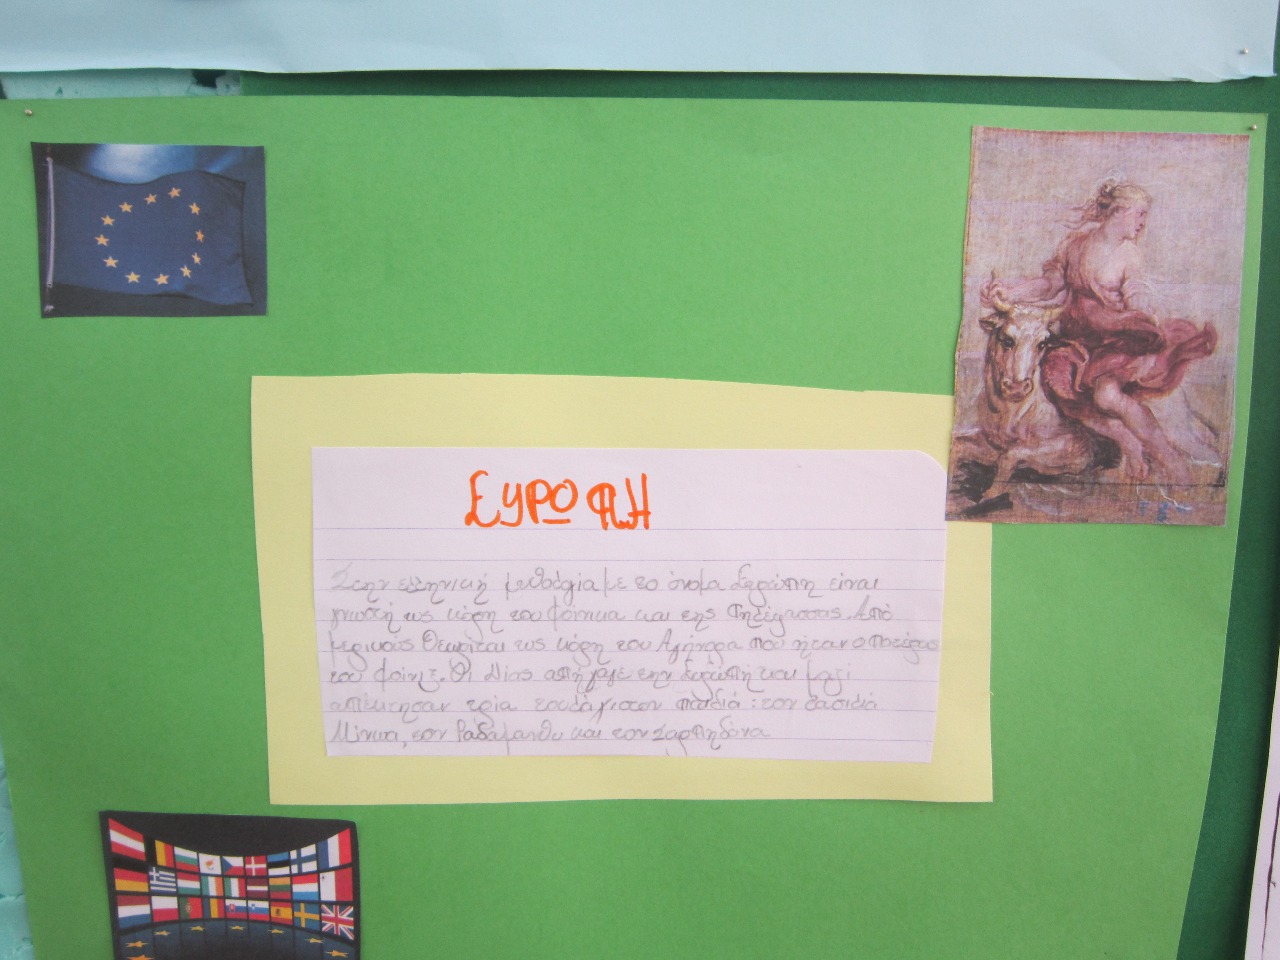 ΕΥΡΩΠΗ
Στην ελληνική μυθολγία με το όνομα Ευρώπη είναι
γνωστή ως κόρη του Φοίνικα και της Τηλέφασσας. Από
μερικούς Θεωρίται ως κόρη του Αγήνορα που ήταν ο πατέρας
του Φοίνικ. Οι Δίας απήγαγε την Ευρώπη και μαζί
απέκτησαν τρία τουλάχιστον παιδιά: τον βασιλιά
Μίνωα, τον Ραδάμανθυ και τον Σαρπηδόνα